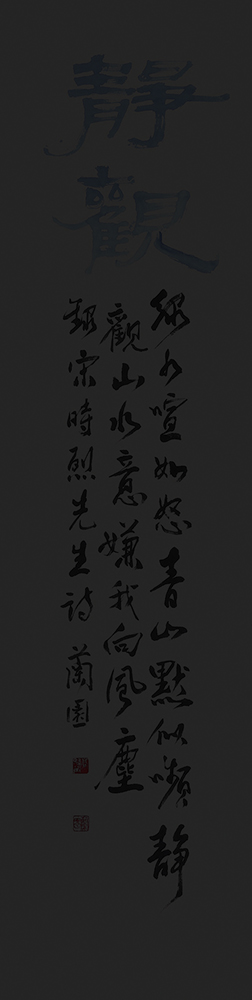 靜觀
綠水喧如怒青山默似嚬靜
觀山水意嫌我向風塵
錄宋時烈先生詩 蘭園